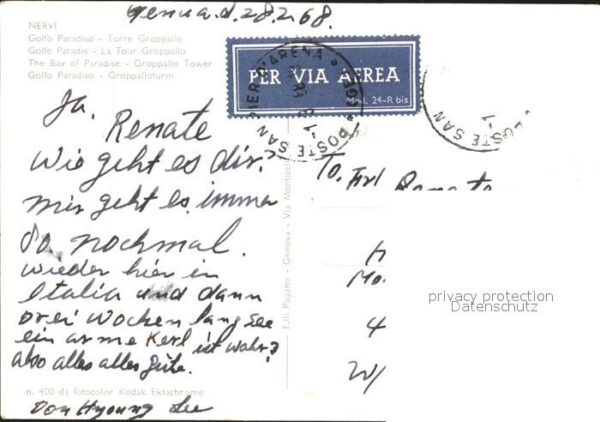 Genua.d.28.2.68.
NERVI
Golfo Paradiso - Torre Groppallo
Golfe Paradis - La Tour Groppallo
The Bay of Paradise - Groppallo Tower
Golfe Paradiso - Groppalloturm
PER VIA AEREA
Mod. 24-R bis
POSTE SAN PIER D'ARENA
POSTE SAN
Ja, Renate
Wie geht es dir.
mir geht es immer
so nochmal.
wieder hier in
Italia und dann
drei Wochen lang See
ein arme Kerl ist wahr?
also alles alles Gute.
Don Hyoung Lee
To. Frl Renate
H
Mo.
4
W
F.lli Pagano - Genova - Via Monticel
n. 400 da fotocolor Kodak Ektachrome
privacy protection
Datenschutz